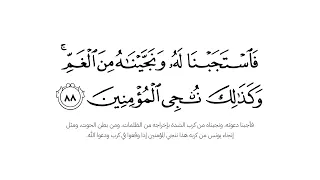 فَٱسْتَجَبْنَا لَهُۥ وَنَجَّيْنَٰهُ مِنَ ٱلْغَمِّ ۚ
وَكَذَٰلِكَ نُۨجِى ٱلْمُؤْمِنِينَ ٨٨
فأجبنا دعوته، ونجيناه من كرب الشدة بإخراجه من الظلمات، ومن بطن الحوت، ومثل
إنجاء يونس من كربه هذا ننجي المؤمنين إذا وقعوا في كرب ودعوا الله.